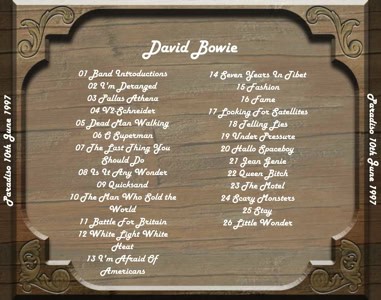 David Bowie
01 Band Introductions
02 I'm Deranged
03 Pallas Athena
04 V2-Schneider
05 Dead Man Walking
06 O Superman
07 The Last Thing You
Should Do
08 Is It Any Wonder
09 Quicksand
10 The Man Who Sold the
World
11 Battle For Britain
12 White Light White
Heat
13 I'm Afraid Of
Americans
14 Seven Years In Tibet
15 Fashion
16 Fame
17 Looking For Satellites
18 Telling Lies
19 Under Pressure
20 Hallo Spaceboy
21 Jean Genie
22 Queen Bitch
23 The Motel
24 Scary Monsters
25 Stay
26 Little Wonder
Paradiso 10th June 1997
Paradiso 10th June 1997